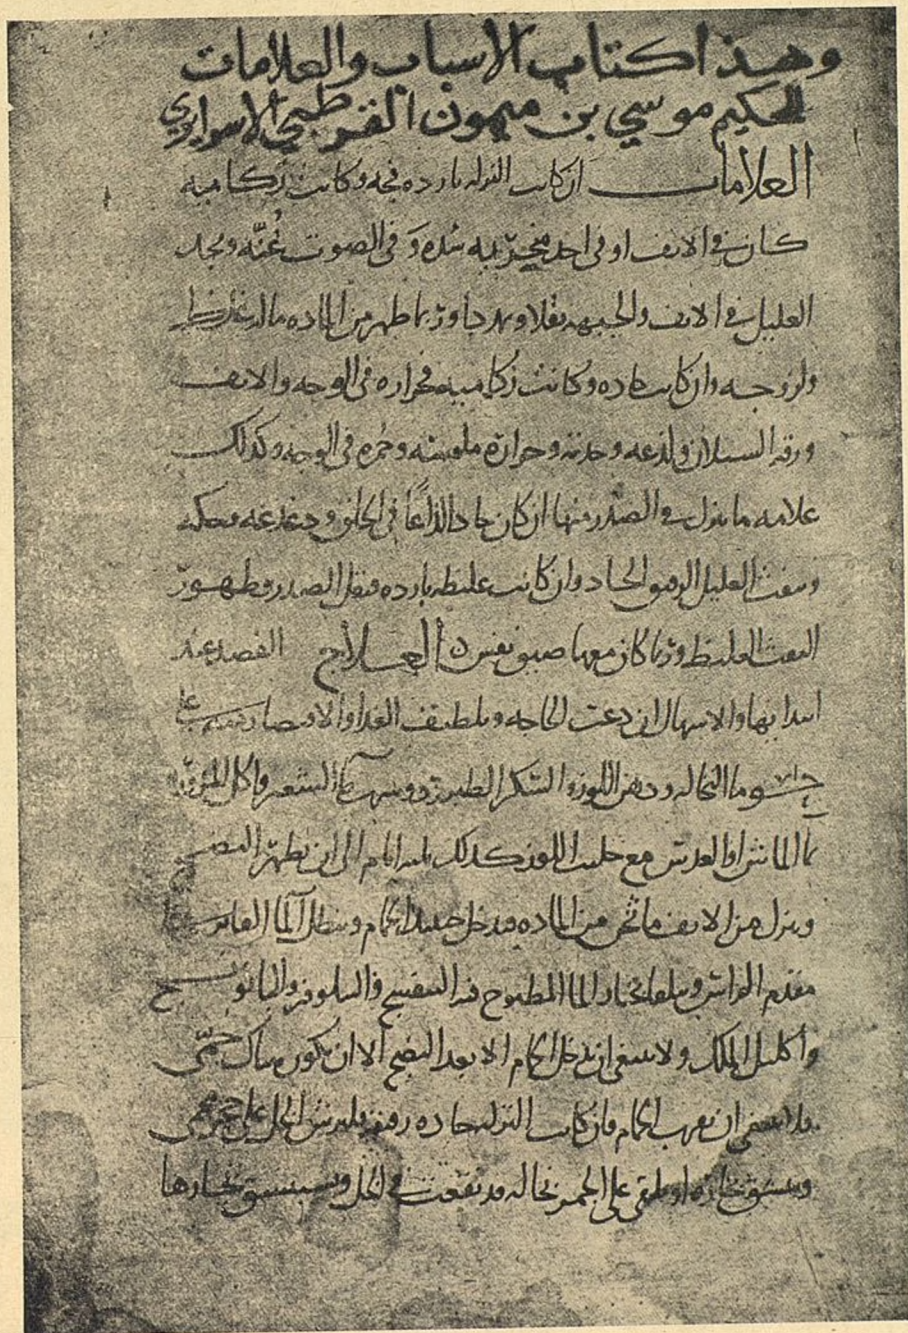 وهذا كتاب الاسباب والعلامات
للحكيم موسي بن ميمون القرطبي
العلامات ان كانت النزله بارده فجه وكانت زكاميه
كان في الانف او في احد منخريه سُده وَفى الصوت غُنّه ويجد
العليل في الانف والجبهه ثقلا وتمددا وربما ظهر من الماده ماله غلظ
ولزوجه وان كانت حاده وكانت زكاميه فحراره فى الوجه والانف
ورقه السيلان ولذعه وحدته وحراره ملمسه وحُمره فى الوجه وكذلك
علامه ما ينزل في الصدر منها ان كان حادا لذاعًا فى الحلق ودغدغه وحكه
ونفث العليل الرقيق الحاد وان كانت غليظه بارده فثقل الصدر وظهور
النفث الغليظ وربما كان معها ضيق نفس العلاج الفصد عند
ابتدايها والاسهال ان دعت الحاجه وتلطيف الغدا والاقتصار على
حسو ما النخاله ودهن اللوز والسكر الطبرزد وشرب ما الشعير واكل المزوره
بما الماش او العدس مع حليب اللوز كذلك ثلثه ايام الى ان يظهر النضج
وينزل من الانف ما ثخن من الماده فدخل حينيذ الحمام وينطل الما الفاتر
مقدم الراس ويتلقا بخار الما المطبوخ فيه البنفسج والنيلوفر والبابونج
واكليل الملك ولا ينبغى ان يدخل الحمام الا بعد النضج الا ان تكون هناك حمّى
فلا ينبغى ان يقرب الحمام فان كانت النزله حاده رقيقه فليرش الخل على حجر محمى
ويستنشق بخاره او يلقى على الجمر نخاله قد نقعت في الخل ويستنشق بخارها